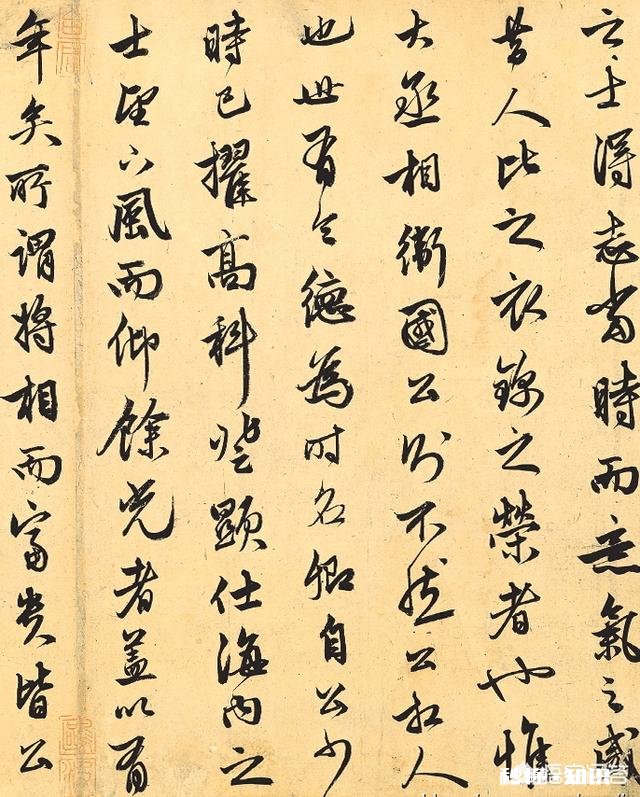 之士得志當時而意氣之盛
昔人比之衣錦之榮者也惟
大丞相衛國公則不然公相人
也世有令德為时名卿自公少
時已擢高科登顯仕海內之
士望下風而仰餘光者蓋以有
年矣所謂將相而富貴皆公